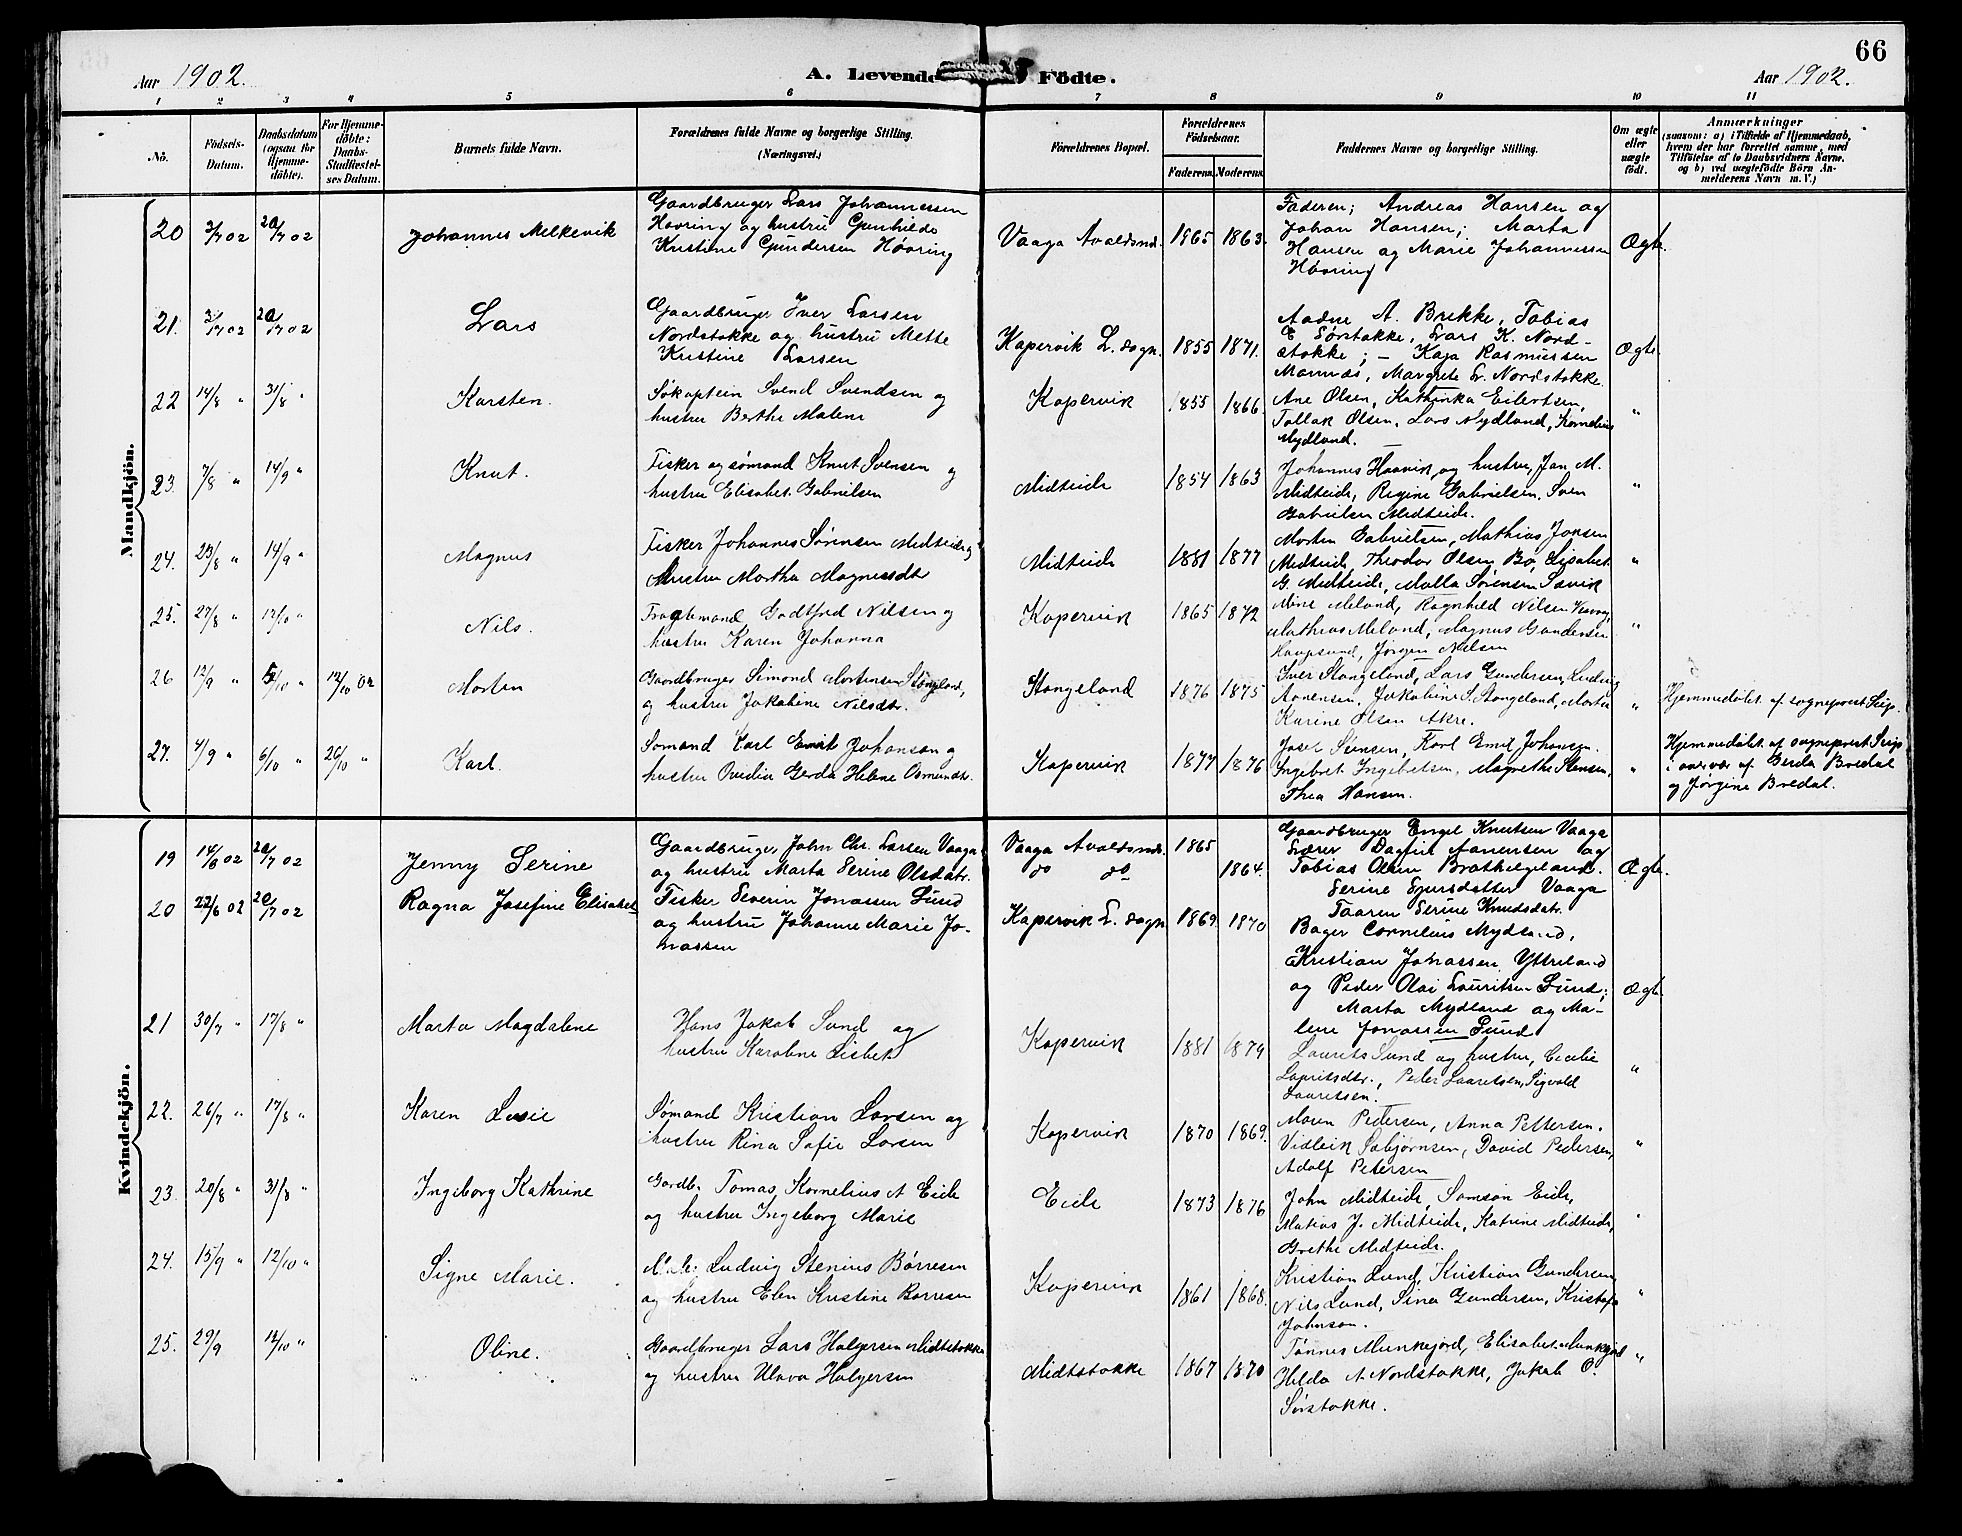 66
Aar 1902.
A. Levende Födte.
Aar 1902.
1 2 3 4 5 6 7 8 9 10 11
No.
Födsels-Datum.
Daabsdatum (ogsaa for Hjemme-döbte).
For Hjemme-döbte: Daabs-Stadfæstel-ses Datum.
Barnets fulde Navn.
Forældrenes fulde Navne og borgerlige Stilling.
(Næringsvei.)
Forældrenes Bopæl.
Forældrenes Födselsaar.
Faderens. Moderens.
Faddernes Navne og borgerlige Stilling.
Om ægte eller uægte födt.
Anmærkninger
(saasom: a) i Tilfælde af Hjemmedaab,
hvem der har forrettet samme, med
Tilföielse af to Daabsvidners Navne,
og b) ved uægtefödte Börn An-
melderens Navn m. V.)
Mandkjön.
20 3/7 02 20/7 02 Johannes Melkevik
Gaardbruger Lars Johannessen
Hövring og hustru Gunhilde
Kristine Gundersen Hövring
Vaaga Avaldsnd. 1865 1863.
Faderen; Andreas Hansen og
Johan Hansen; Marta
Hansen og Marie Johannessen
Hövring
Ægte.
21. 3/7 02 20/7 02 Lars
Gaardbruger Iver Larsen
Nordstokke og hustru Mette
Kristine Larsen
Kopervik L. sogn. 1855 1871.
Aadne A. Brekke, Tobias
E Sörstokke, Lars K. Nord-
stokke; - Kaja Rasmussen
Mannes, Margrete Lr. Nordstokke.
Ægte.
22 14/8 " 31/8 " Karsten.
Søkaptein Svend Svendsen og
hustru Berthe Malene
Kopervik 1855 1866.
Ane Olsen, Kathinka Eilertsen,
Tollak Olsen, Lars Mydland, Kornelius
Mydland.
"
23. 7/8 " 14/9 " Knut.
Fisker og sømand Knut Svensen og
hustru Elisabet Gabrielsen
Midteide 1854 1863
Johannes Haavik og hustru, Jan M.
Midteide, Regine Gabrielsen, Sven
Gabrielsen Midteide.
"
24. 23/8 " 14/9 " Magnus
Fisker Johannes Sørensen Midteide og
hustru Martha Magnesdtr
Midteide 1881 1877
Morten Gabrielsen, Mathias Jonsen
Midteide, Theodor Olsen Bø, Elisabet
G. Midteide, Malla Sørensen Sævik
"
25. 27/8 " 12/10 " Nils.
Fragtemand Godtfred Nilsen og
hustru Karen Johanna
Kopervik 1865 1872
Mine Meland, Ragnhild Nilsen
Mathias Meland, Magnus Gundersen
Haugsund, Jørgen Nilsen
"
26 12/9 " 5/10 " 12/10 02 Morten
Gaardbruger Simond Mortensen Stangeland,
og hustru Jakobine Nilsdtr.
Stangeland 1876 1875
Iver Stangeland, Lars Gundersen, Ludvig
Aanensen, Jakobine S. Stangeland, Marta
Karine Olsen Akre.
"
Hjemmedøbt af sogneprest Seip.
27. 4/9 " 6/10 " 26/10 " Karl.
Sømand Karl Emil Johanson og
hustru Ovidia Gerda Helene Osmundtr.
Kopervik 1877 1876
Josef Stensen, Karl Emil Johansen.
Ingebret Ingebretsen, Magrethe Stensen,
Thea Hansen.
"
Hjemmedøbt af sogneprest Seip
i overvær af Gerda Bredal
og Jørgine Bredal.
Kvindekjön.
19 14/6 02 20/7 02 Jenny Serine
Gaardbruger John Chr. Larsen Vaaga
og hustru Marta Serine Olsdatr.
Vaaga Avaldsnd. 1865
do do 1864.
Gaardbruger Engel Knutsen Vaaga
Lærer Dagfin Aanensen og
Tobias Olsen Brathelgeland.
Serine Sjursdatter Vaaga
Taaren Serine Knudsdatr.
Ægte.
20 22/6 02 20/7 02 Ragna Josefine Elisabet
Fisker Severin Jonassen Lund
og hustru Johanne Marie Jo-
nassen
Kopervik L. sogn 1869. 1870
Bager Cornelius Mydland,
Kristian Jonassen Yttreland
og Peder Olai Lauritsen Lund;
Marta Mydland og Ma-
lene Jonassen Lund
Ægte.
21 30/7 " 17/8 " Marta Magdalene
Hans Jakob Lund og
hustru Karoline Lisbet
Kopervik 1881 1879
Laurits Lund og hustru, Cecilie
Lauritsdtr., Peder Lauritsen, Sigvald
Lauritsen.
"
22. 26/7 " 17/8 " Karen Lovise
Sømand Kristian Larsen og
hustru Rina Sofie Larsen
Kopervik 1870 1869.
Maren Pedersen, Anna Pettersen.
Vidleik Sæbjørnsen, David Pedersen,
Adolf Petersen
"
23. 20/8 " 31/8 " Ingeborg Kathrine
Gardb. Tomas Kornelius A Eide
og hustru Ingeborg Marie
Eide 1873 1876
John Midteide, Samson Eide,
Matias J. Midteide, Katrine Midteide,
Grethe Midteide.
"
24. 15/9 " 12/10 " Signe Marie.
Ludvig Stenius Børresen
og hustru Elen Kristine Børresen
Kopervik 1861 1868.
Kristian Lund, Kristian Gundersen,
Nils Lund, Sina Gundersen, Kristofa
Johnson.
"
25. 29/9 12/10 " Oline.
Gaardbruger Lars Holgersen Midtstokke
og hustru Olava Holgersen
Midtstokke 1867 1870
Tønnes Munkejord, Elisabet Munkejord
Helda A Nordstokke, Jakob O.
Sørstokke.
"